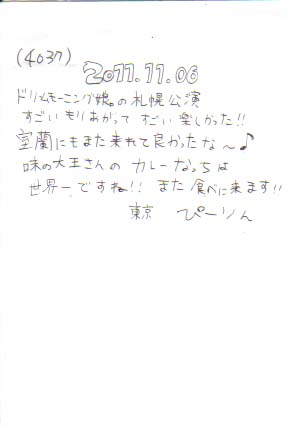 (4037)
2011.11.06
ドリームモーニング娘。の札幌公演
すごいもりあがって すごい楽しかった!!
室蘭にもまた来れて良かったな〜♪
味の大王さんの カレーなっちは
世界一ですね!! また食べに来ます!!
東京 ぴーりん